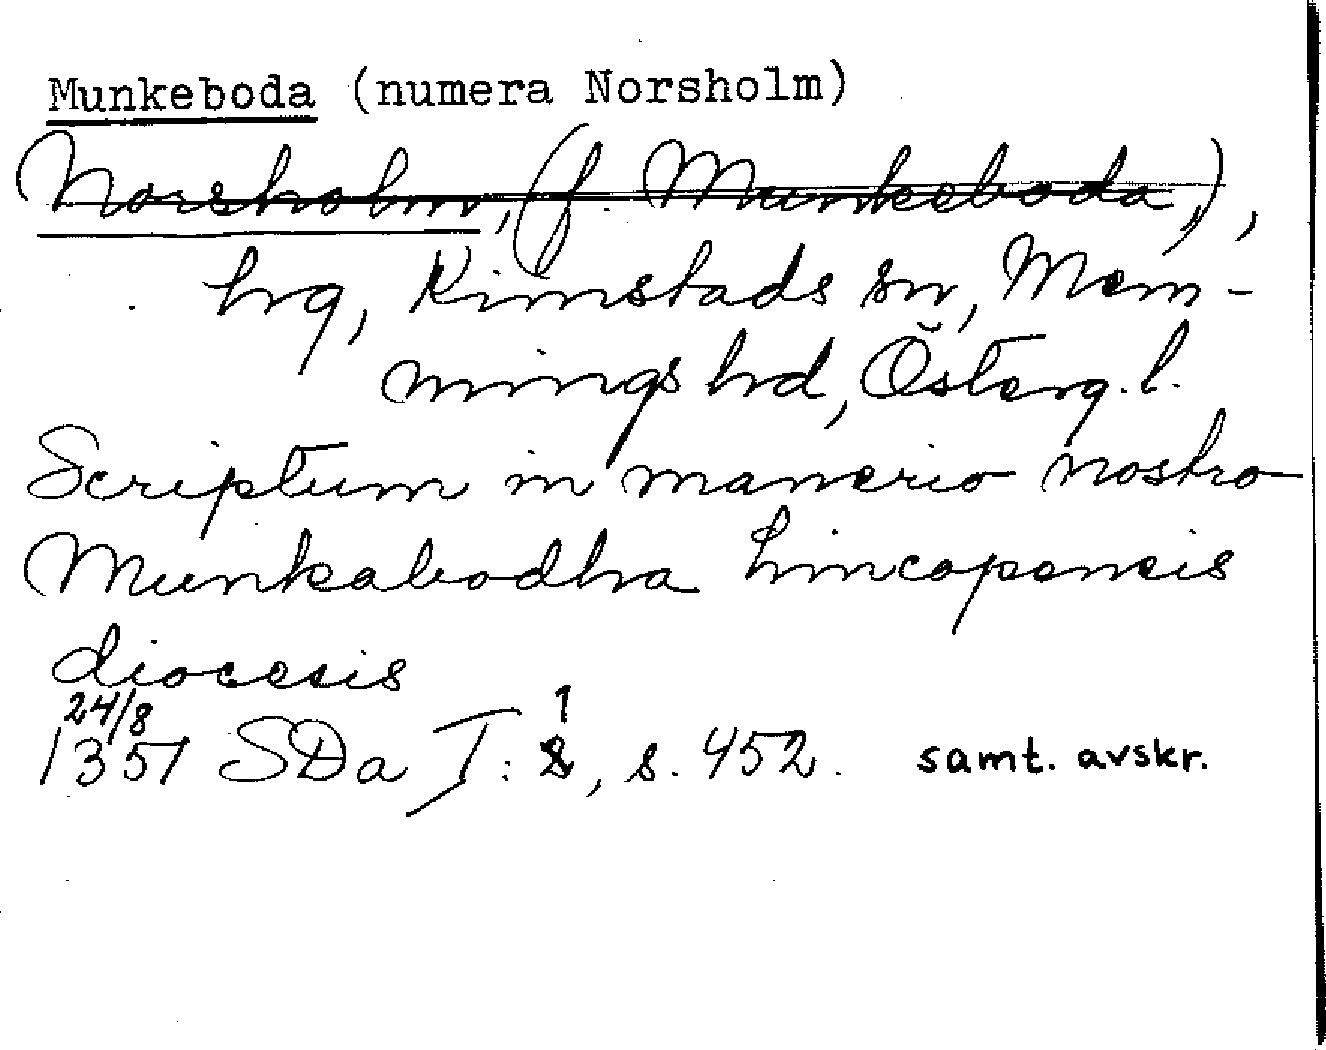 Munkeboda (numera Norsholm)
Norsholm, (f. Munkeboda,),
hrg, Kimstads sn, Mem-
mings hrd, Österg. l.
Scriptum in manerio nostro
Munkabodha Lincopensis
diocesis
24/8
1357 SDa I: 1, s. 452. samt. avskr.